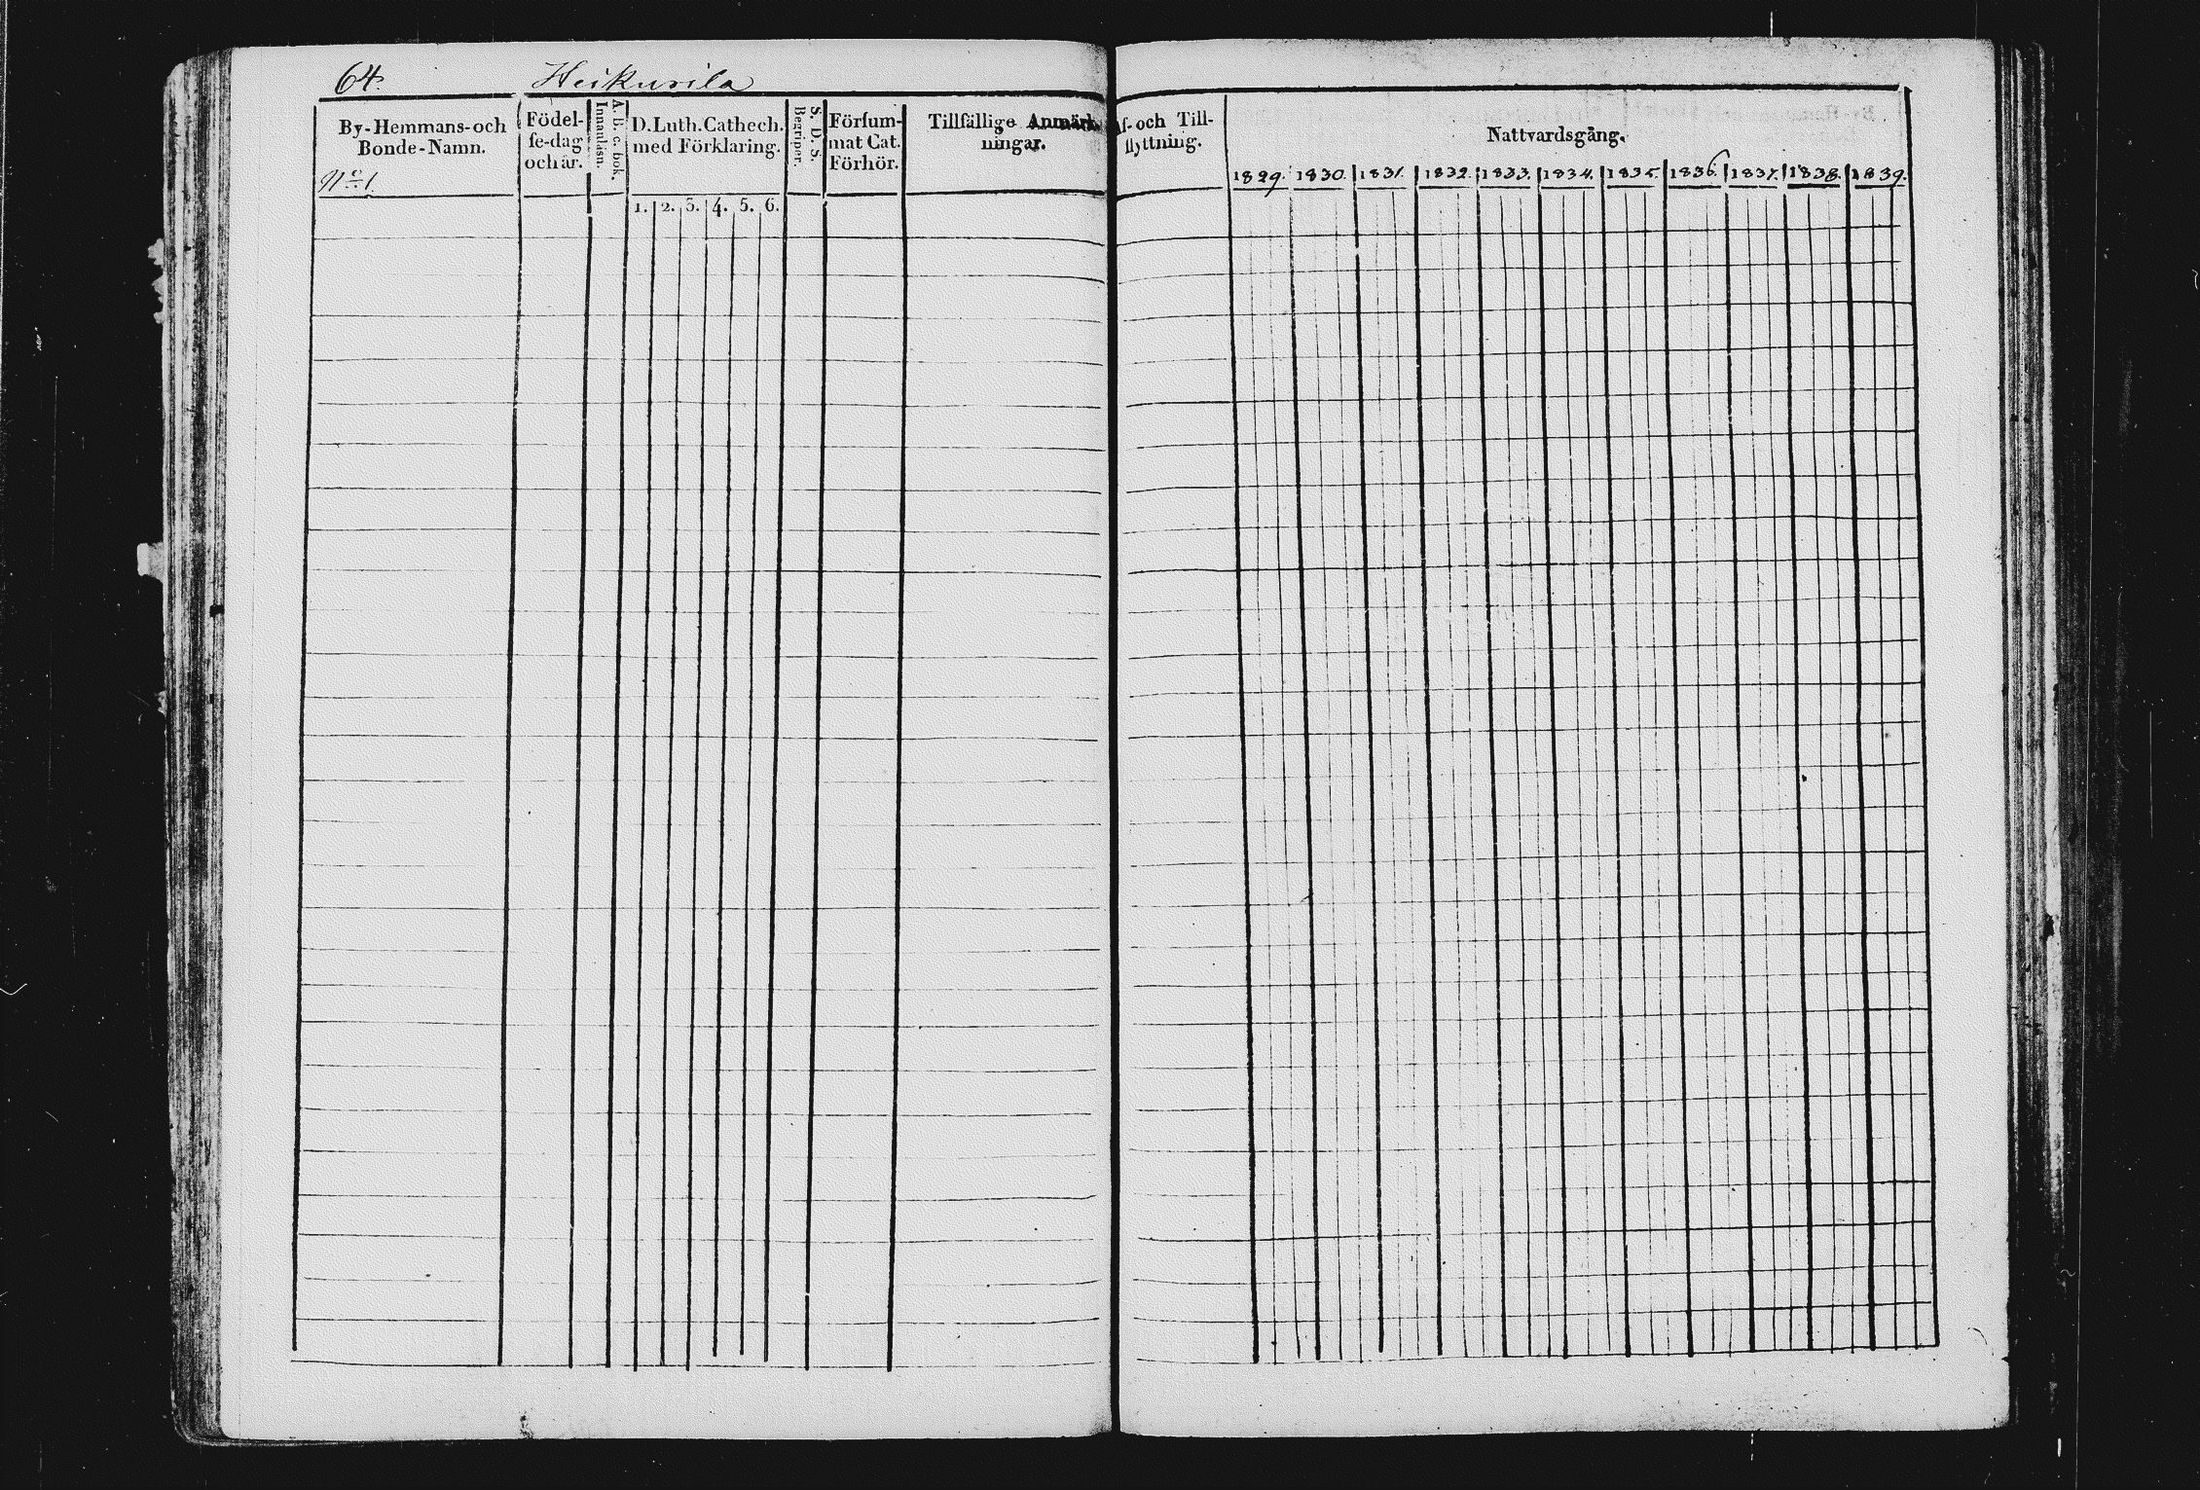 64. Heikurila
By-Hemmans-och
Bonde-Namn.
No 1
Födel-
ſe-dag
och år.
A. B. c. bok.
Innanläsn.
D. Luth. Cathech.
med Förklaring.
1. 2. 3. 4. 5. 6.
S. D. S.
Begriper.
Förſum-
mat Cat.
Förhör.
Tillfällige Anmärk-
ningar.
Af- och Till-
flyttning.
Nattvardsgång.
1829. 1830. 1831. 1832. 1833. 1834. 1835. 1836. 1837. 1838. 1839.